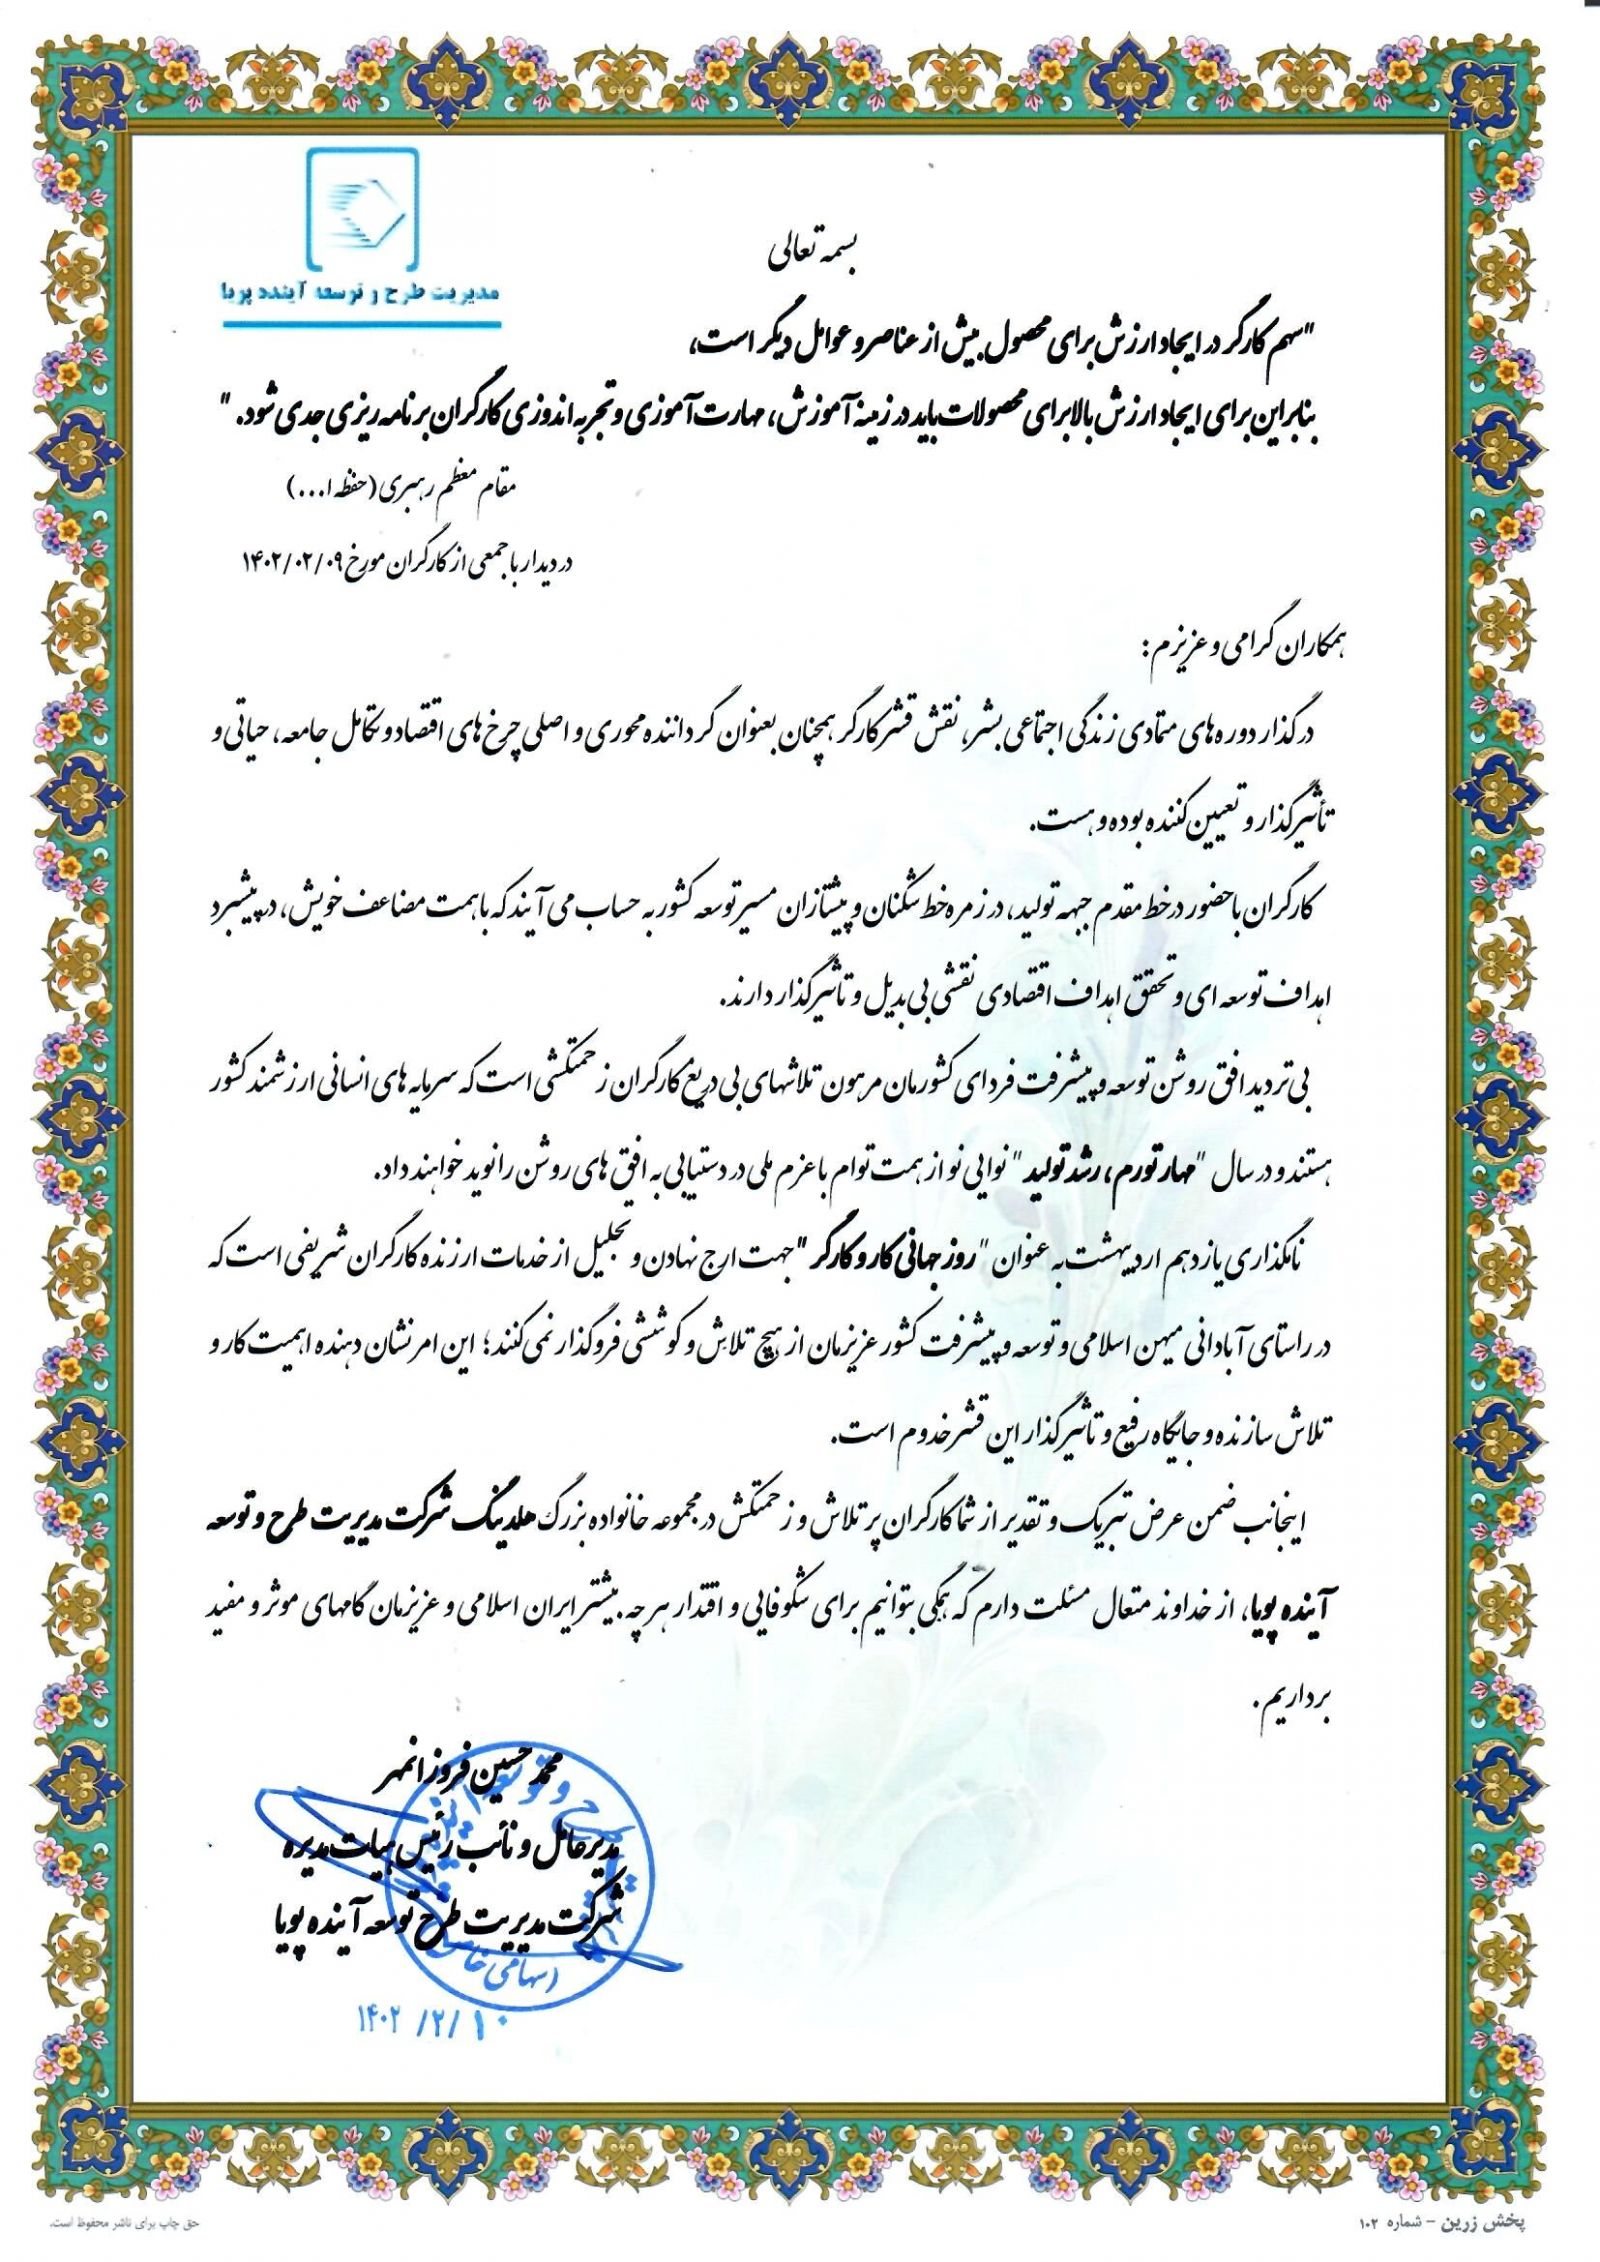 مدیریت طرح و توسعه آینده پویا
بسمه تعالی
"سهم کارگر در ایجاد ارزش برای محصول بیش از عناصر و عوامل دیگر است،
بنابراین برای ایجاد ارزش بالا برای محصولات باید در زمینه آموزش، مهارت آموزی و تجربه اندوزی کارگران برنامه ریزی جدی شود."
مقام معظم رهبری (حفظه ا...)
در دیدار با جمعی از کارگران مورخ ۱۴۰۲/۰۲/۰۹
همکاران گرامی و عزیزم:
در گذار دوره های متمادی زندگی اجتماعی بشر، نقش قشر کارگر همچنان بعنوان گرداننده محوری و اصلی چرخ های اقتصاد و تکامل جامعه، حیاتی و
تأثیرگذار و تعیین کننده بوده و هست.
کارگران با حضور در خط مقدم جبهه تولید، در زمره خط شکنان و پیشتازان مسیر توسعه کشور به حساب می آیند که با همت مضاعف خویش، در پیشبرد
اهداف توسعه ای و تحقق اهداف اقتصادی نقشی بی بدیل و تأثیرگذار دارند.
بی تردید افق روشن توسعه و پیشرفت فردای کشورمان مرهون تلاشهای بی دریغ کارگران زحمتکشی است که سرمایه های انسانی ارزشمند کشور
هستند و در سال "مهار تورم، رشد تولید" نوایی نو از همت توام با عزم ملی در دستیابی به افق های روشن را نوید خواهند داد.
نامگذاری یازدهم اردیبهشت به عنوان "روز جهانی کار و کارگر" جهت ارج نهادن و تجلیل از خدمات ارزنده کارگران شریفی است که
در راستای آبادانی میهن اسلامی و توسعه و پیشرفت کشور عزیزمان از هیچ تلاش و کوششی فروگذار نمی کنند؛ این امر نشان دهنده اهمیت کار و
تلاش سازنده و جایگاه رفیع و تاثیرگذار این قشر خدوم است.
اینجانب ضمن عرض تبریک و تقدیر از شما کارگران پر تلاش و زحمتکش در مجموعه خانواده بزرگ هلدینگ شرکت مدیریت طرح و توسعه
آینده پویا، از خداوند متعال مسئلت دارم که همگی بتوانیم برای شکوفایی و اقتدار هر چه بیشتر ایران اسلامی و عزیزمان گامهای موثر و مفید
برداریم.
محمد حسین فروزانمهر
مدیرعامل و نائب رئیس هیات مدیره
شرکت مدیریت طرح توسعه آینده پویا
(سهامی خاص
۱۴۰۲/۲/۱۰
پخش زرین - شماره ۱۰۲
حق چاپ برای ناشر محفوظ است.